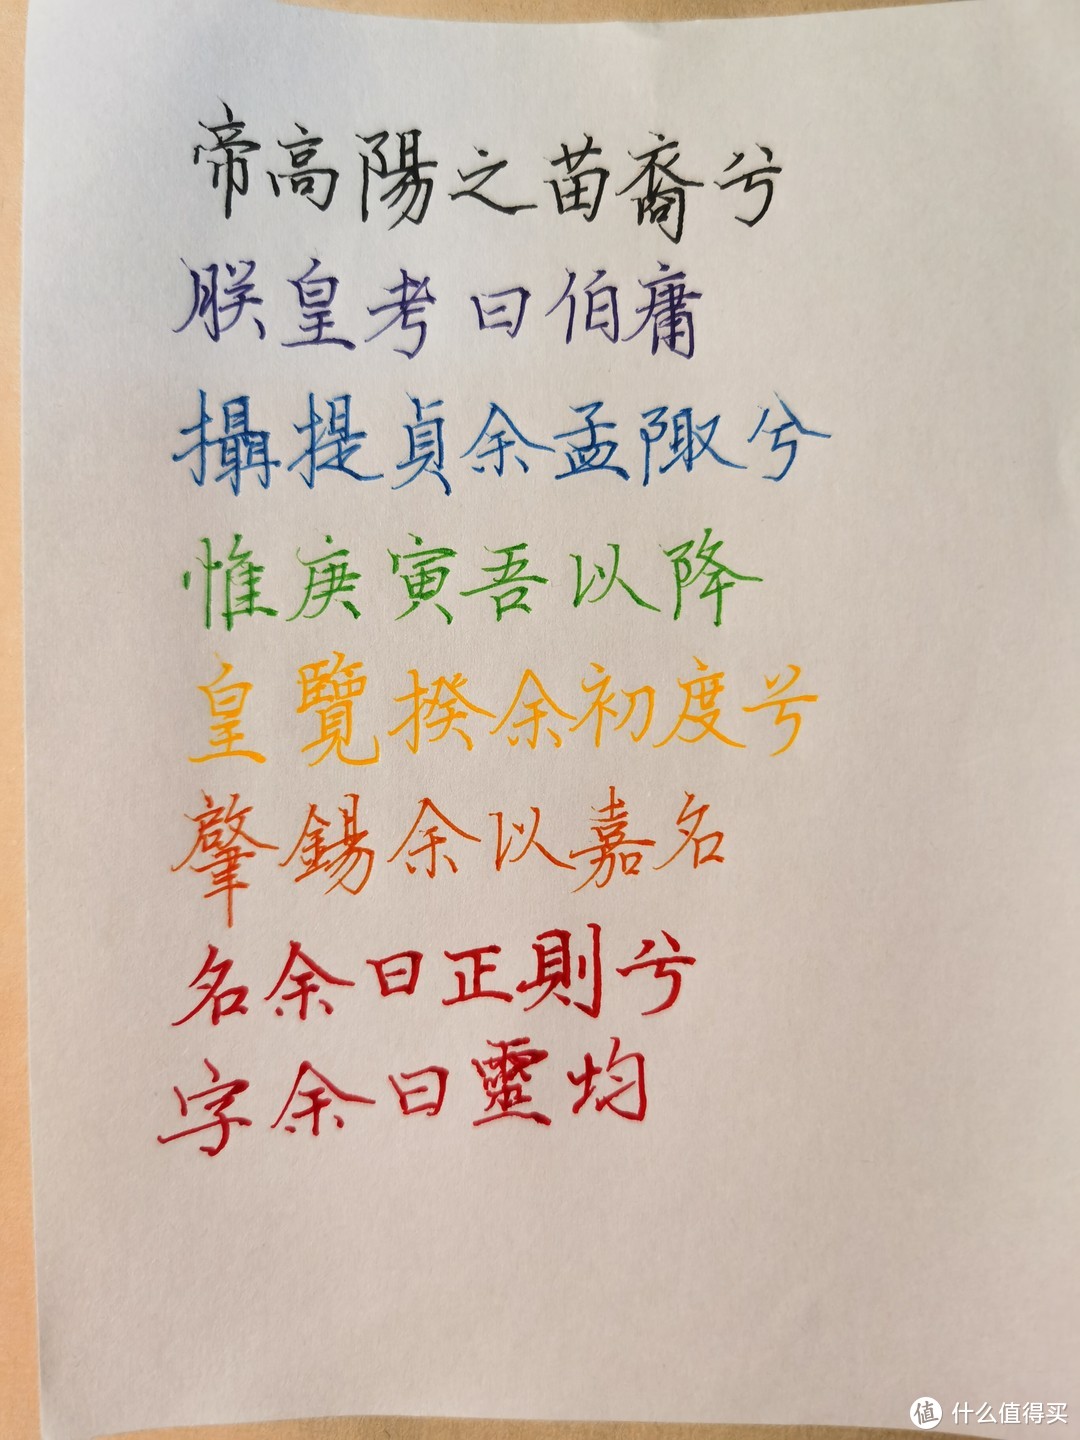 帝高陽之苗裔兮
朕皇考曰伯庸
攝提貞余孟陬兮
惟庚寅吾以降
皇覽揆余初度兮
肇錫余以嘉名
名余曰正則兮
字余曰靈均
值 什么值得买